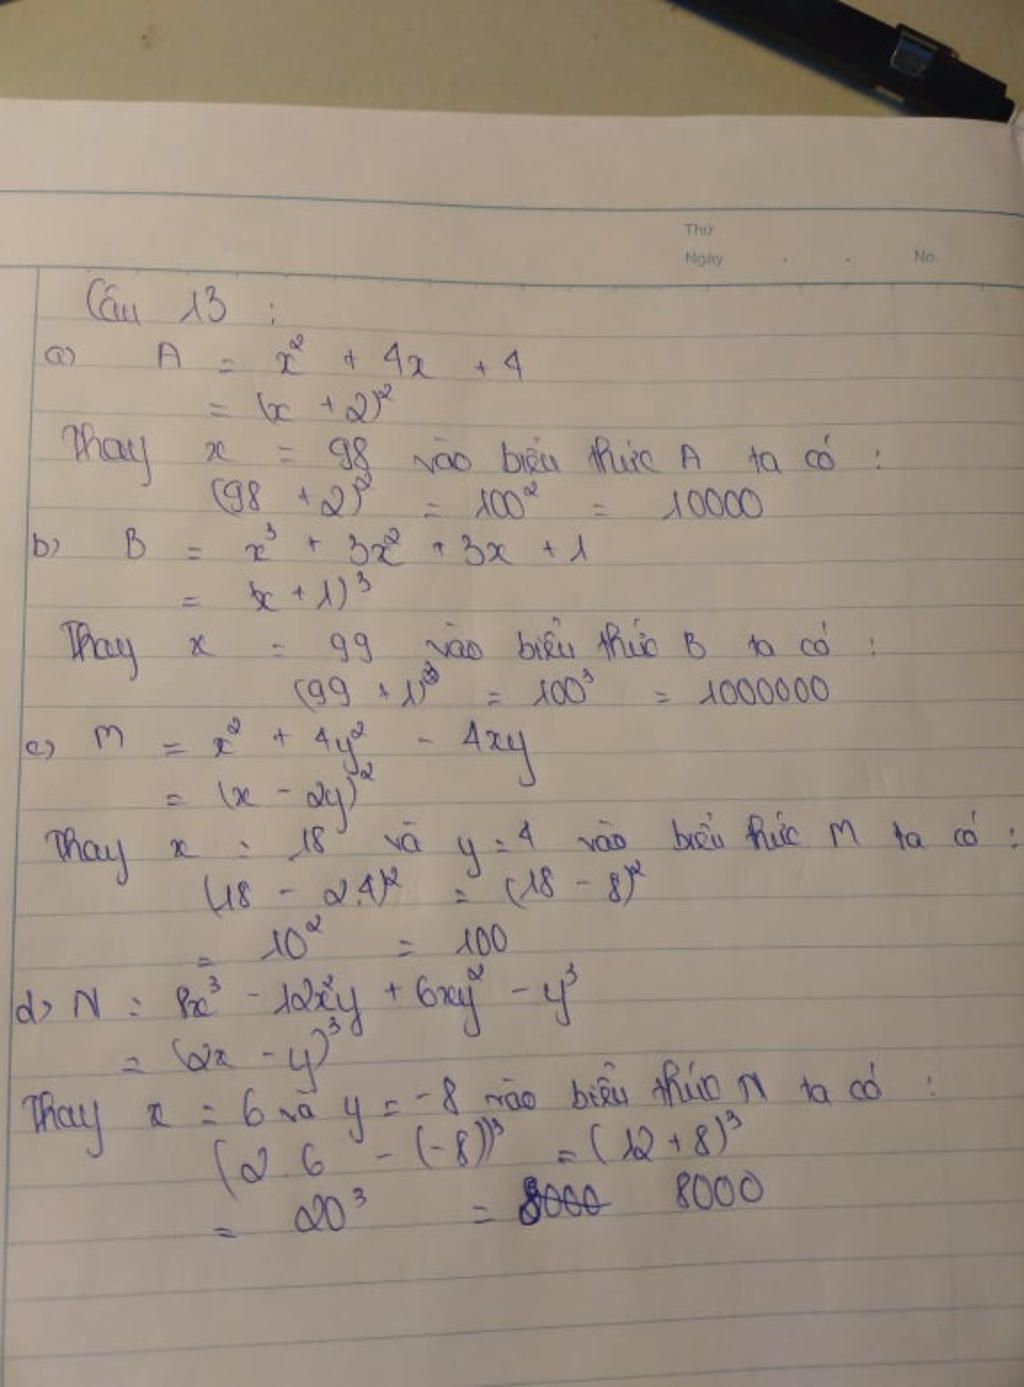 Thứ
Ngày . . No.
Câu 13 :
a) A = x² + 4x + 4
= (x + 2)²
Thay x = 98 vào biểu thức A ta có :
(98 + 2)² = 100² = 10000
b) B = x³ + 3x² + 3x + 1
= (x + 1)³
Thay x = 99 vào biểu thức B ta có :
(99 + 1)³ = 100³ = 1000000
c) M = x² + 4y² - 4xy
= (x - 2y)²
Thay x = 18 và y = 4 vào biểu thức M ta có :
(18 - 2.4)² = (18 - 8)²
= 10² = 100
d) N = 8x³ - 12x²y + 6xy² - y³
= (2x - y)³
Thay x = 6 và y = -8 vào biểu thức N ta có :
(2.6 - (-8))³ = (12 + 8)³
= 20³ = 8000 8000